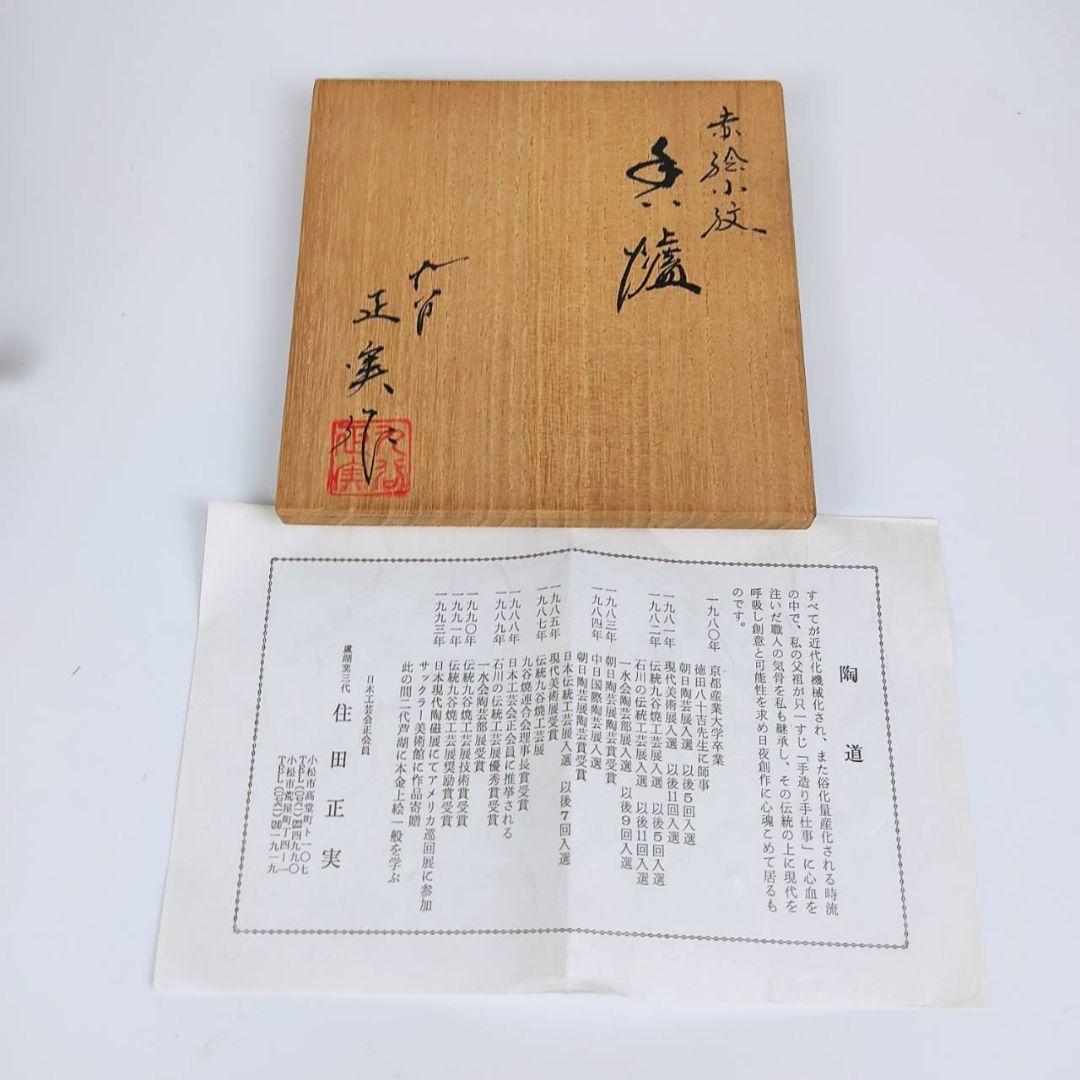 赤絵小紋
香爐
九谷
正実作
九谷
正実
陶道
すべてが近代化機械化され、また俗化量産化される時流
の中で、私の父祖が只一すじ「手造り手仕事」に心血を
注いだ職人の気骨を私も継承し、その伝統の上に現代を
呼吸し創意と可能性を求め日夜創作に心魂こめて居るも
のです。
一九八〇年 京都産業大学卒業
徳田八十吉先生に師事
朝日陶芸展入選 以後5回入選
一九八一年 現代美術展入選 以後11回入選
一九八二年 伝統九谷焼工芸展入選 以後5回入選
石川の伝統工芸展入選 以後11回入選
一水会陶芸部展入選 以後9回入選
一九八三年 朝日陶芸展陶芸賞受賞
一九八四年 中日国際陶芸展入選
朝日陶芸展陶芸賞受賞
日本伝統工芸展入選 以後7回入選
一九八五年 現代美術展受賞
一九八七年 伝統九谷焼工芸展
九谷焼連合会理事長賞受賞
一九八八年 日本工芸会正会員に推挙される
一九八九年 石川の伝統工芸展優秀賞受賞
一水会陶芸部展受賞
一九九〇年 伝統九谷焼工芸展技術賞受賞
一九九一年 伝統九谷焼工芸展奨励賞受賞
一九九三年 日本現代陶磁展にてアメリカ巡回展に参加
サックラー美術館に作品寄贈
此の間二代芦湖に本金上絵一般を学ぶ
日本工芸会正会員
盧湖窯三代 住田正実
小松市高堂町ト一〇七
小松市荒屋町丁四ー一